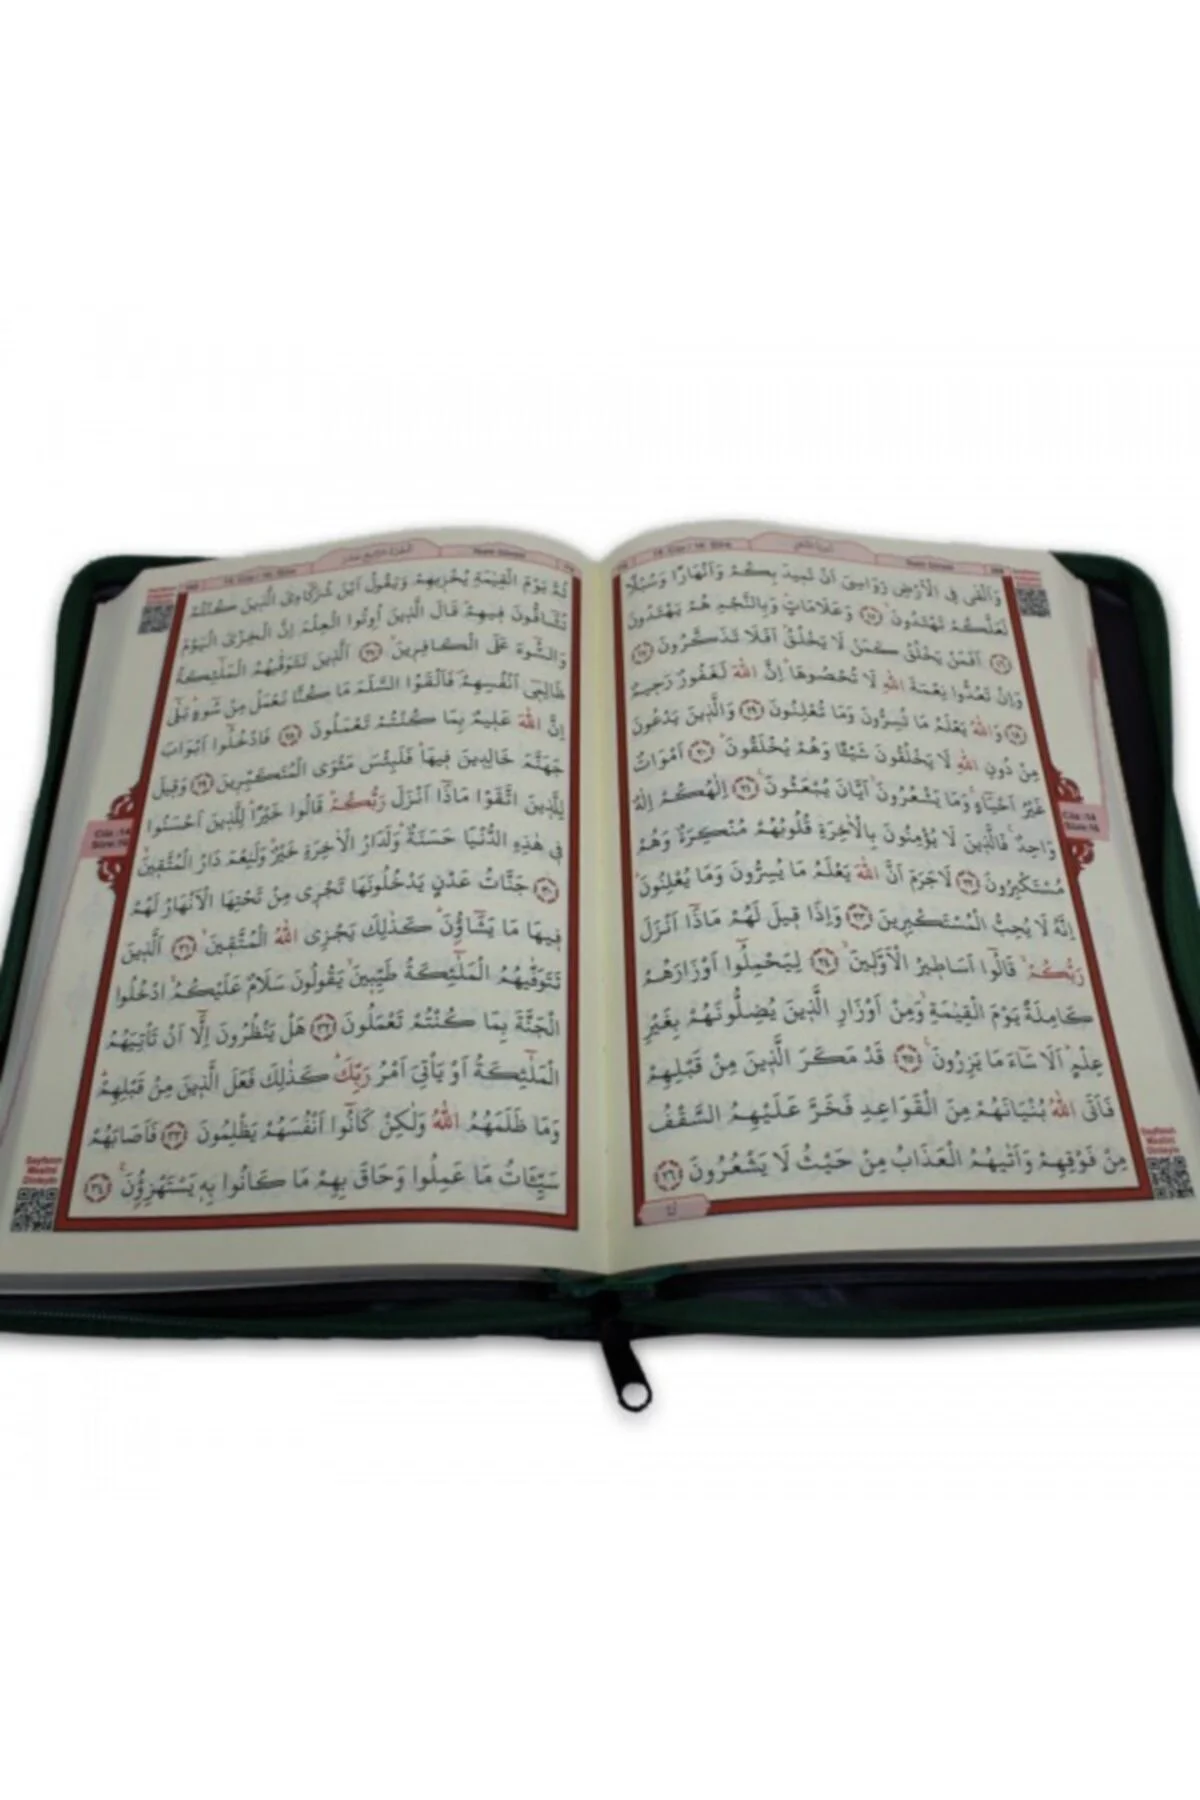 سورة النحل
وَاَلْقٰى فِى الْاَرْضِ رَوَاسِىَ اَنْ تَمِيدَ بِكُمْ وَاَنْهَارًا وَسُبُلًا
لَعَلَّكُمْ تَهْتَدُونَۙ ﴿١٥﴾ وَعَلَامَاتٍۜ وَبِالنَّجْمِ هُمْ يَهْتَدُونَ
﴿١٦﴾ اَفَمَنْ يَخْلُقُ كَمَنْ لَا يَخْلُقُۜ اَفَلَا تَذَكَّرُونَ ﴿١٧﴾
وَاِنْ تَعُدُّوا نِعْمَةَ اللّٰهِ لَا تُحْصُوهَاۜ اِنَّ اللّٰهَ لَغَفُورٌ رَحِيمٌ
﴿١٨﴾ وَاللّٰهُ يَعْلَمُ مَا تُسِرُّونَ وَمَا تُعْلِنُونَ ﴿١٩﴾ وَالَّذِينَ يَدْعُونَ
مِنْ دُونِ اللّٰهِ لَا يَخْلُقُونَ شَيْـًٔا وَهُمْ يُخْلَقُونَۜ ﴿٢٠﴾ اَمْوَاتٌ
غَيْرُ اَحْيَٓاءٍۚ وَمَا يَشْعُرُونَۙ اَيَّانَ يُبْعَثُونَ۟ ﴿٢١﴾ اِلٰهُكُمْ اِلٰهٌ
وَاحِدٌۚ فَالَّذِينَ لَا يُؤْمِنُونَ بِالْاٰخِرَةِ قُلُوبُهُمْ مُنْكِرَةٌ وَهُمْ
مُسْتَكْبِرُونَ ﴿٢٢﴾ لَاجَرَمَ اَنَّ اللّٰهَ يَعْلَمُ مَا يُسِرُّونَ وَمَا يُعْلِنُونَۜ
اِنَّهُ لَا يُحِبُّ الْمُسْتَكْبِرِينَ ﴿٢٣﴾ وَاِذَا قِيلَ لَهُمْ مَاذَٓا اَنْزَلَ
رَبُّكُمْۙ قَالُٓوا اَسَاطِيرُ الْاَوَّلِينَۙ ﴿٢٤﴾ لِيَحْمِلُٓوا اَوْزَارَهُمْ
كَامِلَةً يَوْمَ الْقِيٰمَةِۙ وَمِنْ اَوْزَارِ الَّذِينَ يُضِلُّونَهُمْ بِغَيْرِ
عِلْمٍۜ اَلَا سَٓاءَ مَا يَزِرُونَ۟ ﴿٢٥﴾ قَدْ مَكَرَ الَّذِينَ مِنْ قَبْلِهِمْ
فَاَتَى اللّٰهُ بُنْيَانَهُمْ مِنَ الْقَوَاعِدِ فَخَرَّ عَلَيْهِمُ السَّقْفُ
مِنْ فَوْقِهِمْ وَاَتٰيهُمُ الْعَذَابُ مِنْ حَيْثُ لَا يَشْعُرُونَ ﴿٢٦﴾
Cüz :14
Sûre:16
Sayfanın
Mealini
Dinleyin
ثُمَّ يَوْمَ الْقِيٰمَةِ يُخْزِيهِمْ وَيَقُولُ اَيْنَ شُرَكَٓاءِىَ الَّذِينَ كُنْتُمْ
تُشَٓاقُّونَ فِيهِمْۜ قَالَ الَّذِينَ اُوتُوا الْعِلْمَ اِنَّ الْخِزْىَ الْيَوْمَ
وَالسُّٓوءَ عَلَى الْكَافِرِينَۙ ﴿٢٧﴾ اَلَّذِينَ تَتَوَفّٰيهُمُ الْمَلٰٓئِكَةُ
ظَالِمِٓى اَنْفُسِهِمْۖ فَاَلْقَوُا السَّلَمَ مَا كُنَّا نَعْمَلُ مِنْ سُٓوءٍۜ بَلٰٓى
اِنَّ اللّٰهَ عَلِيمٌ بِمَا كُنْتُمْ تَعْمَلُونَ ﴿٢٨﴾ فَادْخُلُٓوا اَبْوَابَ
جَهَنَّمَ خَالِدِينَ فِيهَاۜ فَلَبِئْسَ مَثْوَى الْمُتَكَبِّرِينَ ﴿٢٩﴾ وَقِيلَ
لِلَّذِينَ اتَّقَوْا مَاذَٓا اَنْزَلَ رَبُّكُمْۜ قَالُوا خَيْرًاۜ لِلَّذِينَ اَحْسَنُوا
فِى هٰذِهِ الدُّنْيَا حَسَنَةٌۜ وَلَدَارُ الْاٰخِرَةِ خَيْرٌۜ وَلَنِعْمَ دَارُ الْمُتَّقِينَۙ
﴿٣٠﴾ جَنَّاتُ عَدْنٍ يَدْخُلُونَهَا تَجْرِى مِنْ تَحْتِهَا الْاَنْهَارُ لَهُمْ
فِيهَا مَا يَشَٓاؤُ۫نَۜ كَذٰلِكَ يَجْزِى اللّٰهُ الْمُتَّقِينَۙ ﴿٣١﴾ اَلَّذِينَ
تَتَوَفّٰيهُمُ الْمَلٰٓئِكَةُ طَيِّبِينَۙ يَقُولُونَ سَلَامٌ عَلَيْكُمُۙ ادْخُلُوا
الْجَنَّةَ بِمَا كُنْتُمْ تَعْمَلُونَ ﴿٣٢﴾ هَلْ يَنْظُرُونَ اِلَّٓا اَنْ تَأْتِيَهُمُ
الْمَلٰٓئِكَةُ اَوْ يَأْتِىَ اَمْرُ رَبِّكَۜ كَذٰلِكَ فَعَلَ الَّذِينَ مِنْ قَبْلِهِمْۜ
وَمَا ظَلَمَهُمُ اللّٰهُ وَلٰكِنْ كَانُٓوا اَنْفُسَهُمْ يَظْلِمُونَ ﴿٣٣﴾ فَاَصَابَهُمْ
سَيِّـَٔاتُ مَا عَمِلُوا وَحَاقَ بِهِمْ مَا كَانُوا بِهِ يَسْتَهْزِؤُ۫نَ۟ ﴿٣٤﴾
Cüz :14
Sûre:16
Sayfanın
Mealini
Dinleyin